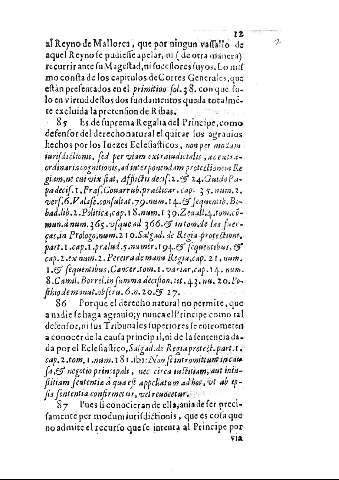 12
2
al Reyno de Mallorca, que por ningun vassallo de
aquel Reyno se pudiesse apelar, ni (de otra manera)
recurrir ante su Magestad, ni sucessores suyos. Lo mis
mo consta de los capitulos de Cortes Generales, que
están presentados en el primitivo fol. 38. con que so-
lo en virtud destos dos fundamentos queda totalmē-
te excluida la pretension de Ribas.
85 Es de suprema Regalia del Principe, como
defensor del derecho natural el quitar los agravios
hechos por los Iuezes Eclesiasticos, non per modum
iurisdictionis, sed per viam extraiudicialis, ac extra-
ordinariæ cognitionis, ad interponendam protectionem Re
giam, ut cum vix stat, afflictis decis. 2. & 24. Guido Pa-
pa decis. 1. Præs. Covarrub. practicar. cap. 35. num. 2.
vers. 6. Valasc. consultat. 79. num. 14. & sequentib. Bo-
bad. lib. 2. Politicæ, cap. 18. num. 139. Zeuall. 4. tom. cō-
mun. à num. 365. usque ad 366. & in tom. de las fuer-
ças, in Prologo, num. 210. Salgad. de Regia protectione,
part. 1. cap. 1. prælud. 5. numer. 194. & sequentibus, &
cap. 2. ex num. 2. Pereira de manu Regia, cap. 21. num.
1. & sequentibus, Cancer. tom. 1. variar. cap. 14. num.
8. Camil. Borrel. in summa decision. tit. 43. nu. 20. Po-
sthio de manut. observ. 6. n. 20. & 27.
86 Porque el derecho natural no permite, que
a nadie se haga agravio; y nunca el Principe como tal
defensor, ni sus Tribunales superiores se entrometen
a conocer de la causa principal, ni de la sentencia da-
da por el Eclesiastico, Salgad. de Regia protect. part. 1.
cap. 2. tom. 1. num. 181. ibi: Non se intromittunt in cau
sa, & negotio principali, nec circa iustitiam, aut iniu-
stitiam sententiæ à qua est appellatum ad hoc, ut ab ip-
sis sententia confirmetur, vel revocetur.
87 Pues si conocieran de ella, avia de ser preci-
samente per modum iurisdictionis, que es cosa que
no admite el recurso que se intenta al Principe por
via